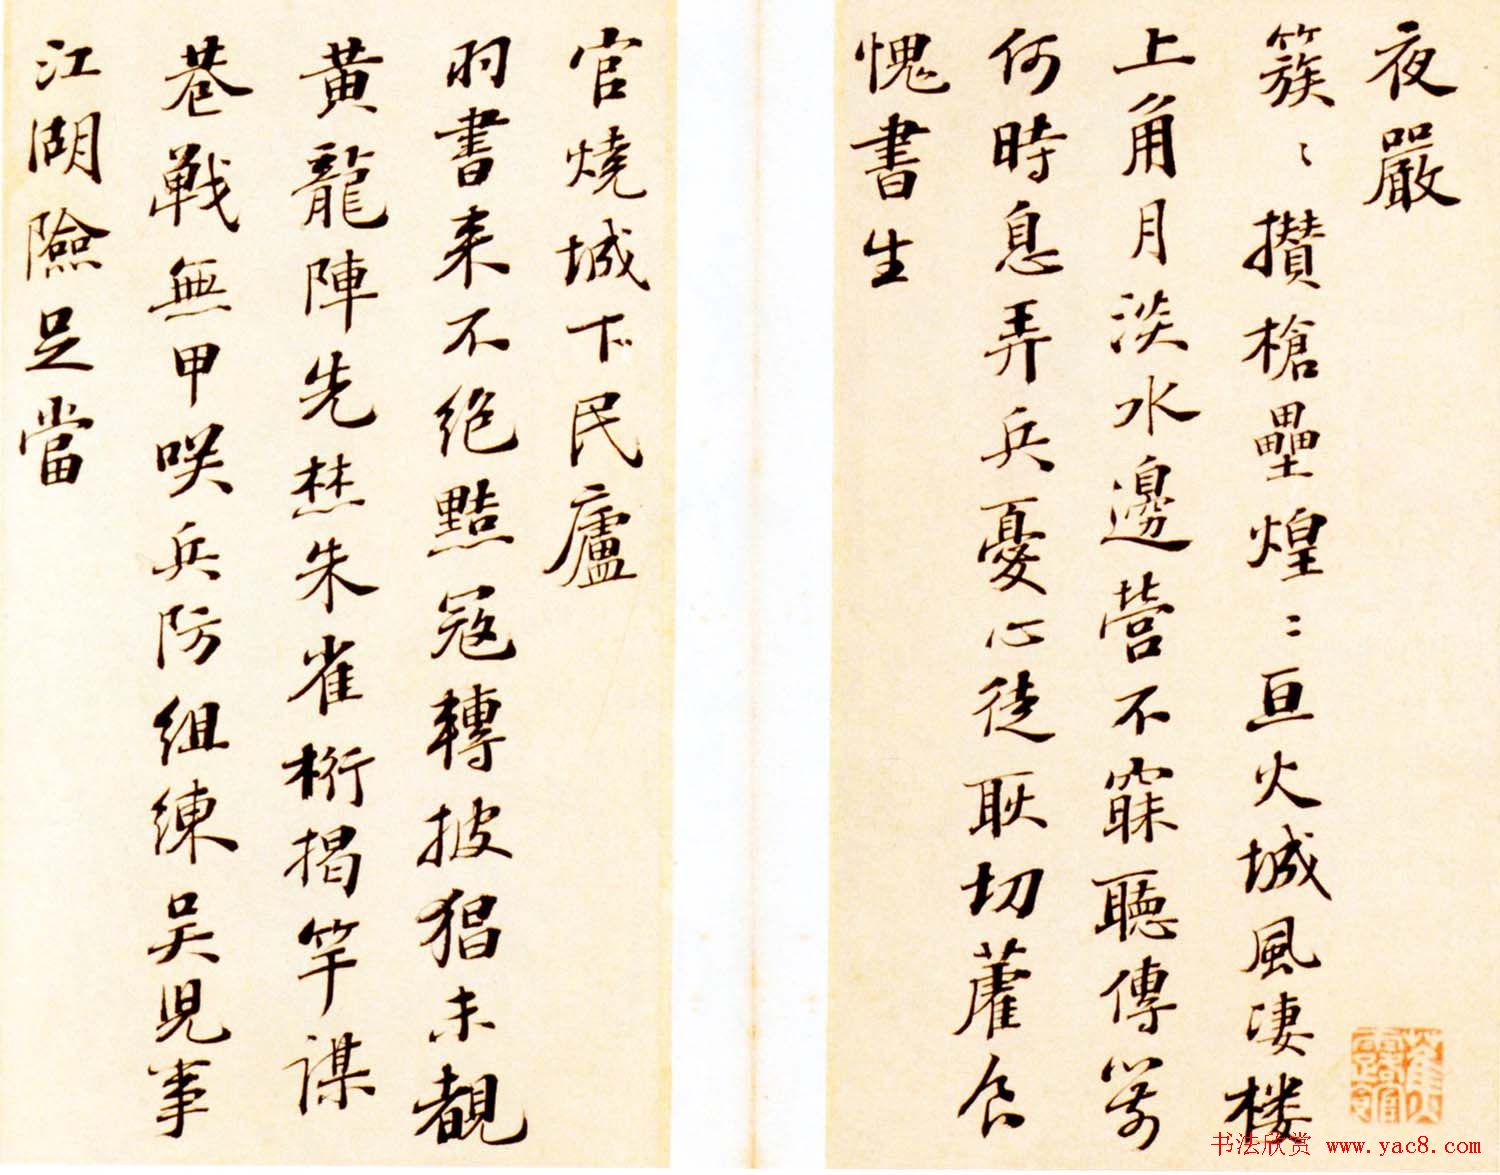 夜嚴
簇〻攢槍壘煌〻亘火城風淒楼
上角月淡水邊營不寐聽傳
何時息弄兵憂心徒耿切藿食
愧書生
官燒城下民廬
羽書来不絶黠寇轉披猖未覩
黃龍陣先焚朱雀桁揭竿謀
巷戰無甲咲兵防組練吳兒事
江湖險足當
书法欣赏 www.yac8.com